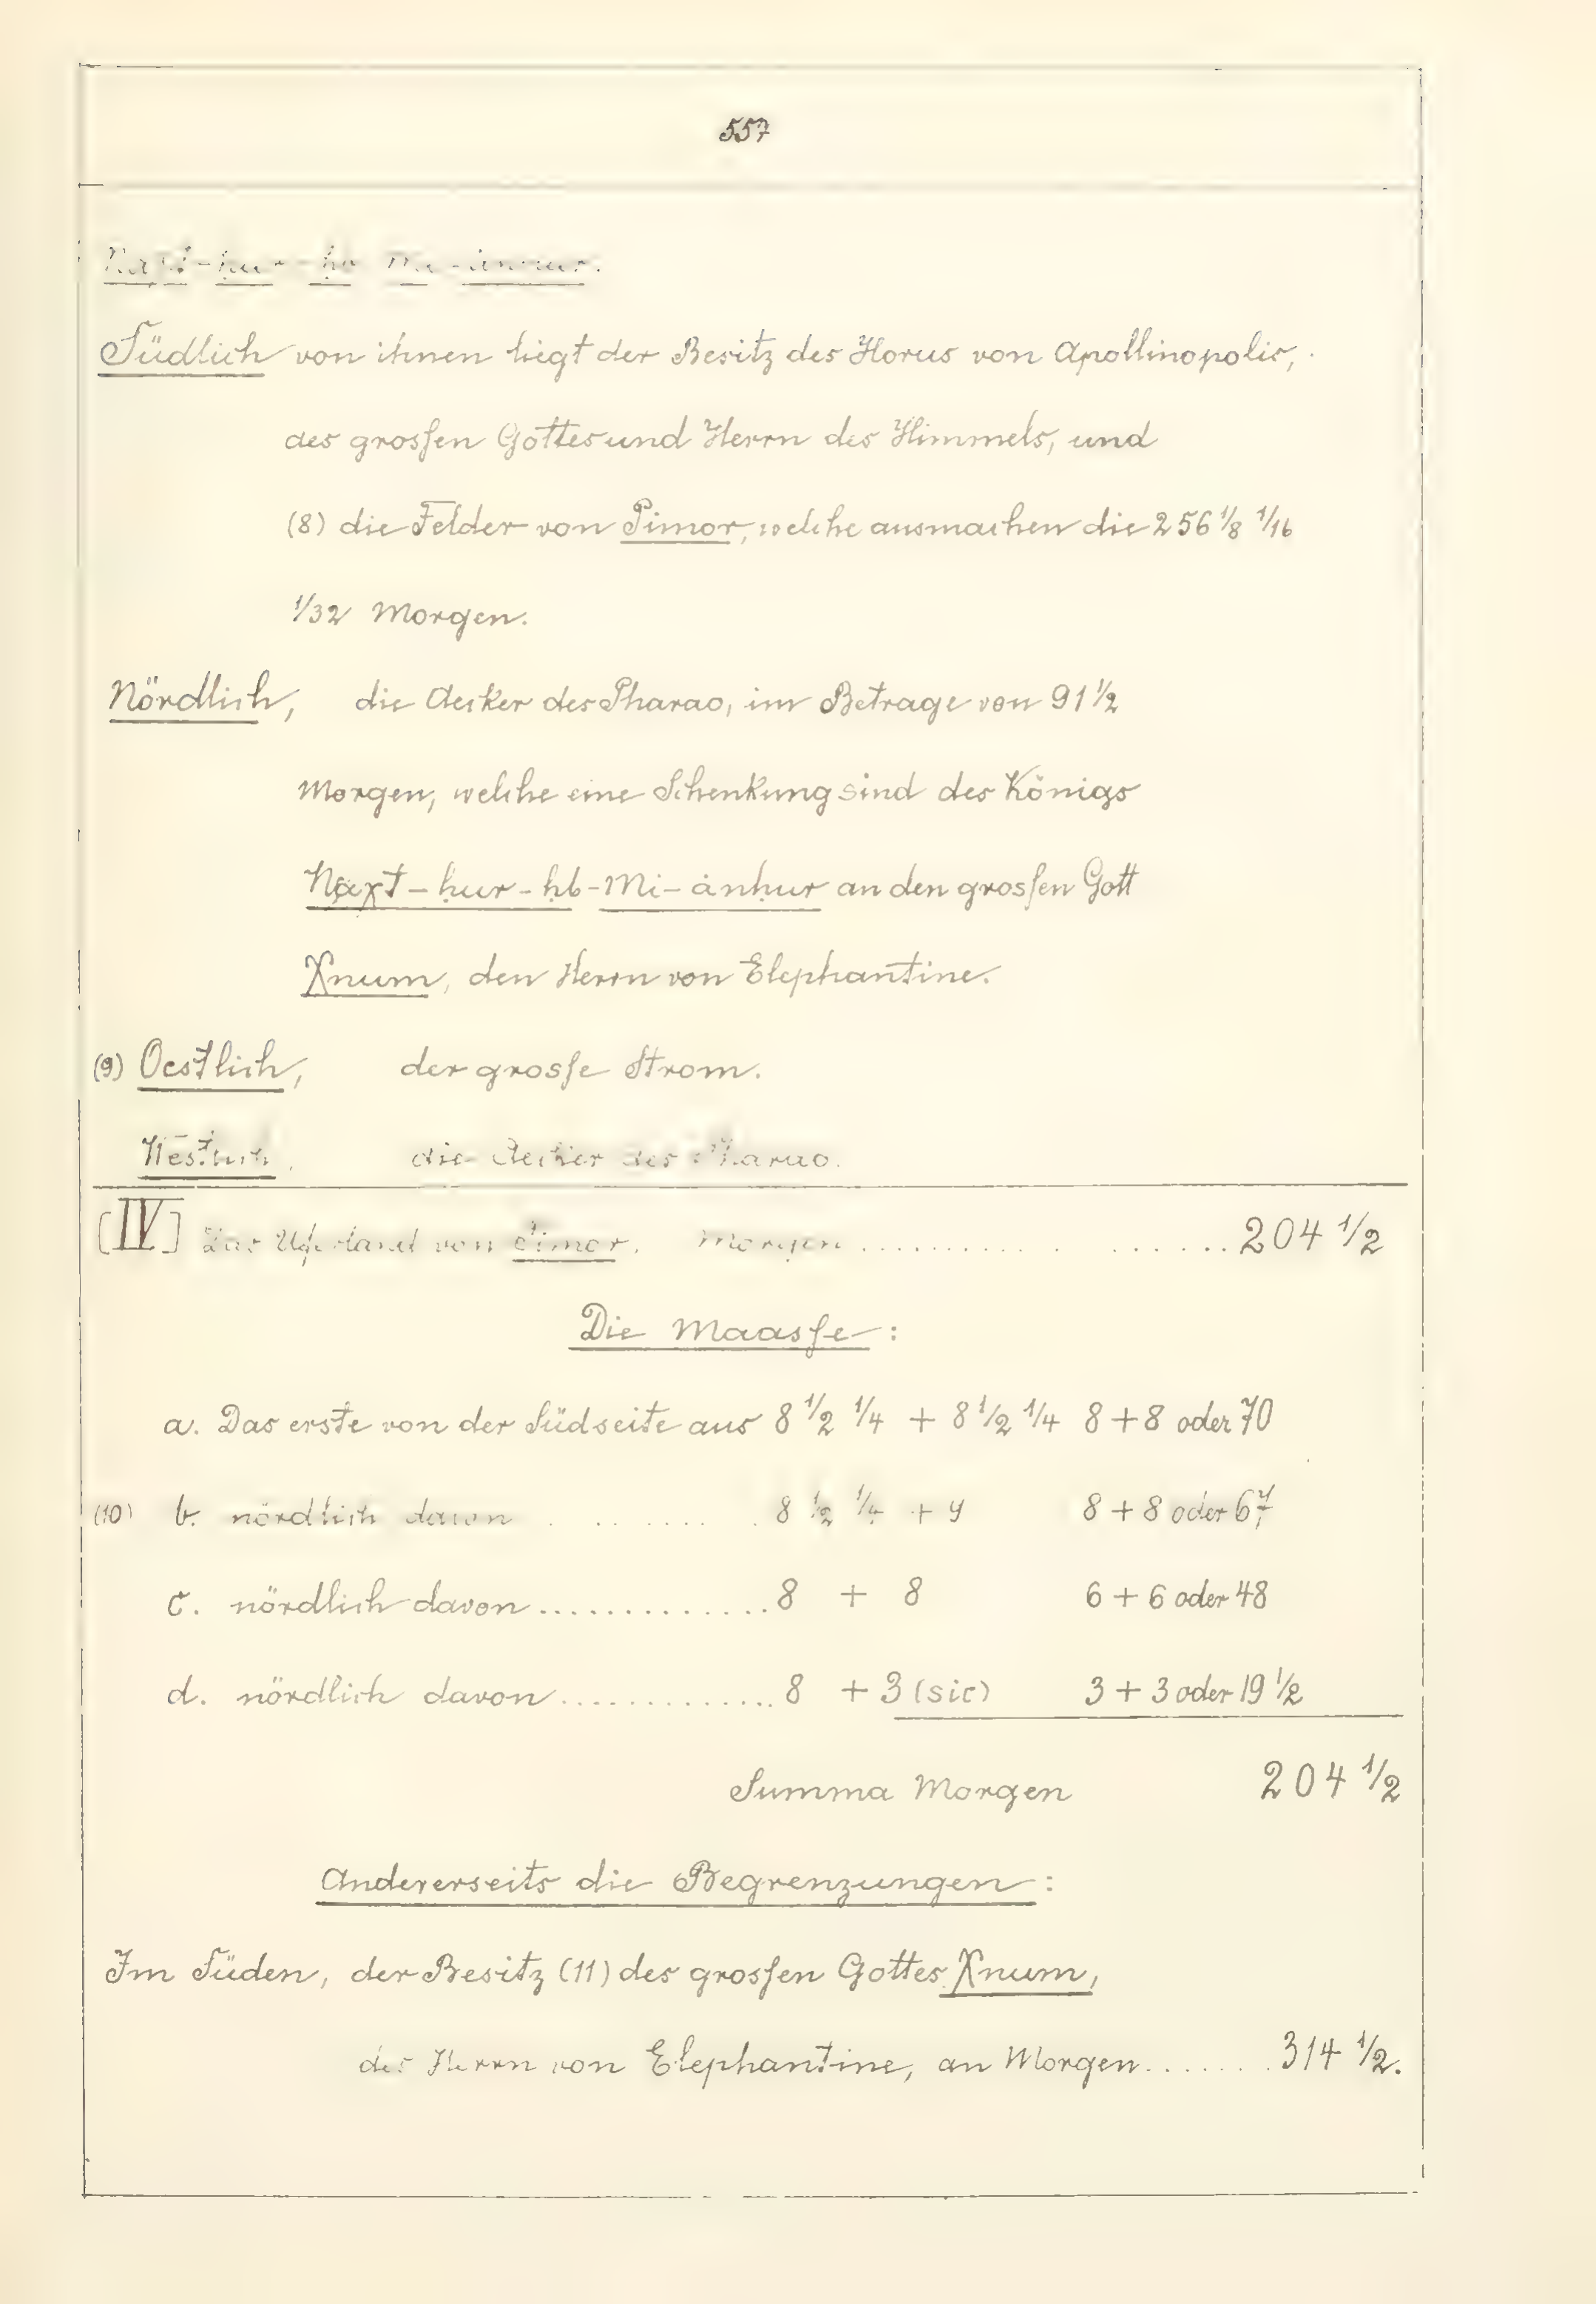 557
Naχt-ḥur-ḥb Mi-ànḥur.
Südlich von ihnen liegt der Besitz des Horus von Apollinopolis,
des grossen Gottes und Herrn des Himmels, und
(8) die Felder von Pimor, welche ausmachen die 256 1/8 1/16
1/32 Morgen.
Nördlich, die Aecker des Pharao, im Betrage von 91 1/2
Morgen, welche eine Schenkung sind des Königs
Naχt-ḥur-ḥb-Mi-ànḥur an den grossen Gott
Χnum, den Herrn von Elephantine.
(9) Oestlich, der grosse Strom.
Westlich, die Aecker des Pharao.
[IV] Das Uferland von Pimor. Morgen .................. 204 1/2
Die Maasse:
a. Das erste von der Südseite aus 8 1/2 1/4 + 8 1/2 1/4 8 + 8 oder 70
(10) b. nördlich davon .......... 8 1/2 1/4 + 9 8 + 8 oder
c. nördlich davon .............. 8 + 8 6 + 6 oder 48
d. nördlich davon .............. 8 + 3 (sic) 3 + 3 oder 19 1/2
Summa Morgen 204 1/2
Andererseits die Begrenzungen:
Im Süden, der Besitz (11) des grossen Gottes Χnum,
des Herrn von Elephantine, an Morgen ....... 314 1/2.